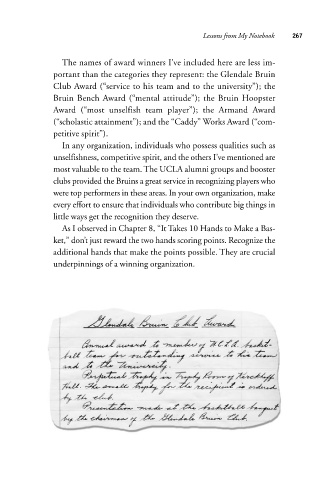 Lessons from My Notebook 267
The names of award winners I've included here are less im-
portant than the categories they represent: the Glendale Bruin
Club Award (“service to his team and to the university”); the
Bruin Bench Award (“mental attitude”); the Bruin Hoopster
Award (“most unselfish team player”); the Armand Award
(“scholastic attainment”); and the “Caddy” Works Award (“com-
petitive spirit”).
In any organization, individuals who possess qualities such as
unselfishness, competitive spirit, and the others I've mentioned are
most valuable to the team. The UCLA alumni groups and booster
clubs provided the Bruins a great service in recognizing players who
were top performers in these areas. In your own organization, make
every effort to ensure that individuals who contribute big things in
little ways get the recognition they deserve.
As I observed in Chapter 8, “It Takes 10 Hands to Make a Bas-
ket,” don't just reward the two hands scoring points. Recognize the
additional hands that make the points possible. They are crucial
underpinnings of a winning organization.
Glendale Bruin Club Award
Annual award to member of U.C.L.A. basket-
ball team for outstanding service to his team
and to the University.
Perpetual trophy in Trophy Room of Kerckhoff
Hall. The small trophy for the recipient is ordered
by the club.
Presentation made at the basketball banquet
by the chairman of the Glendale Bruin Club.